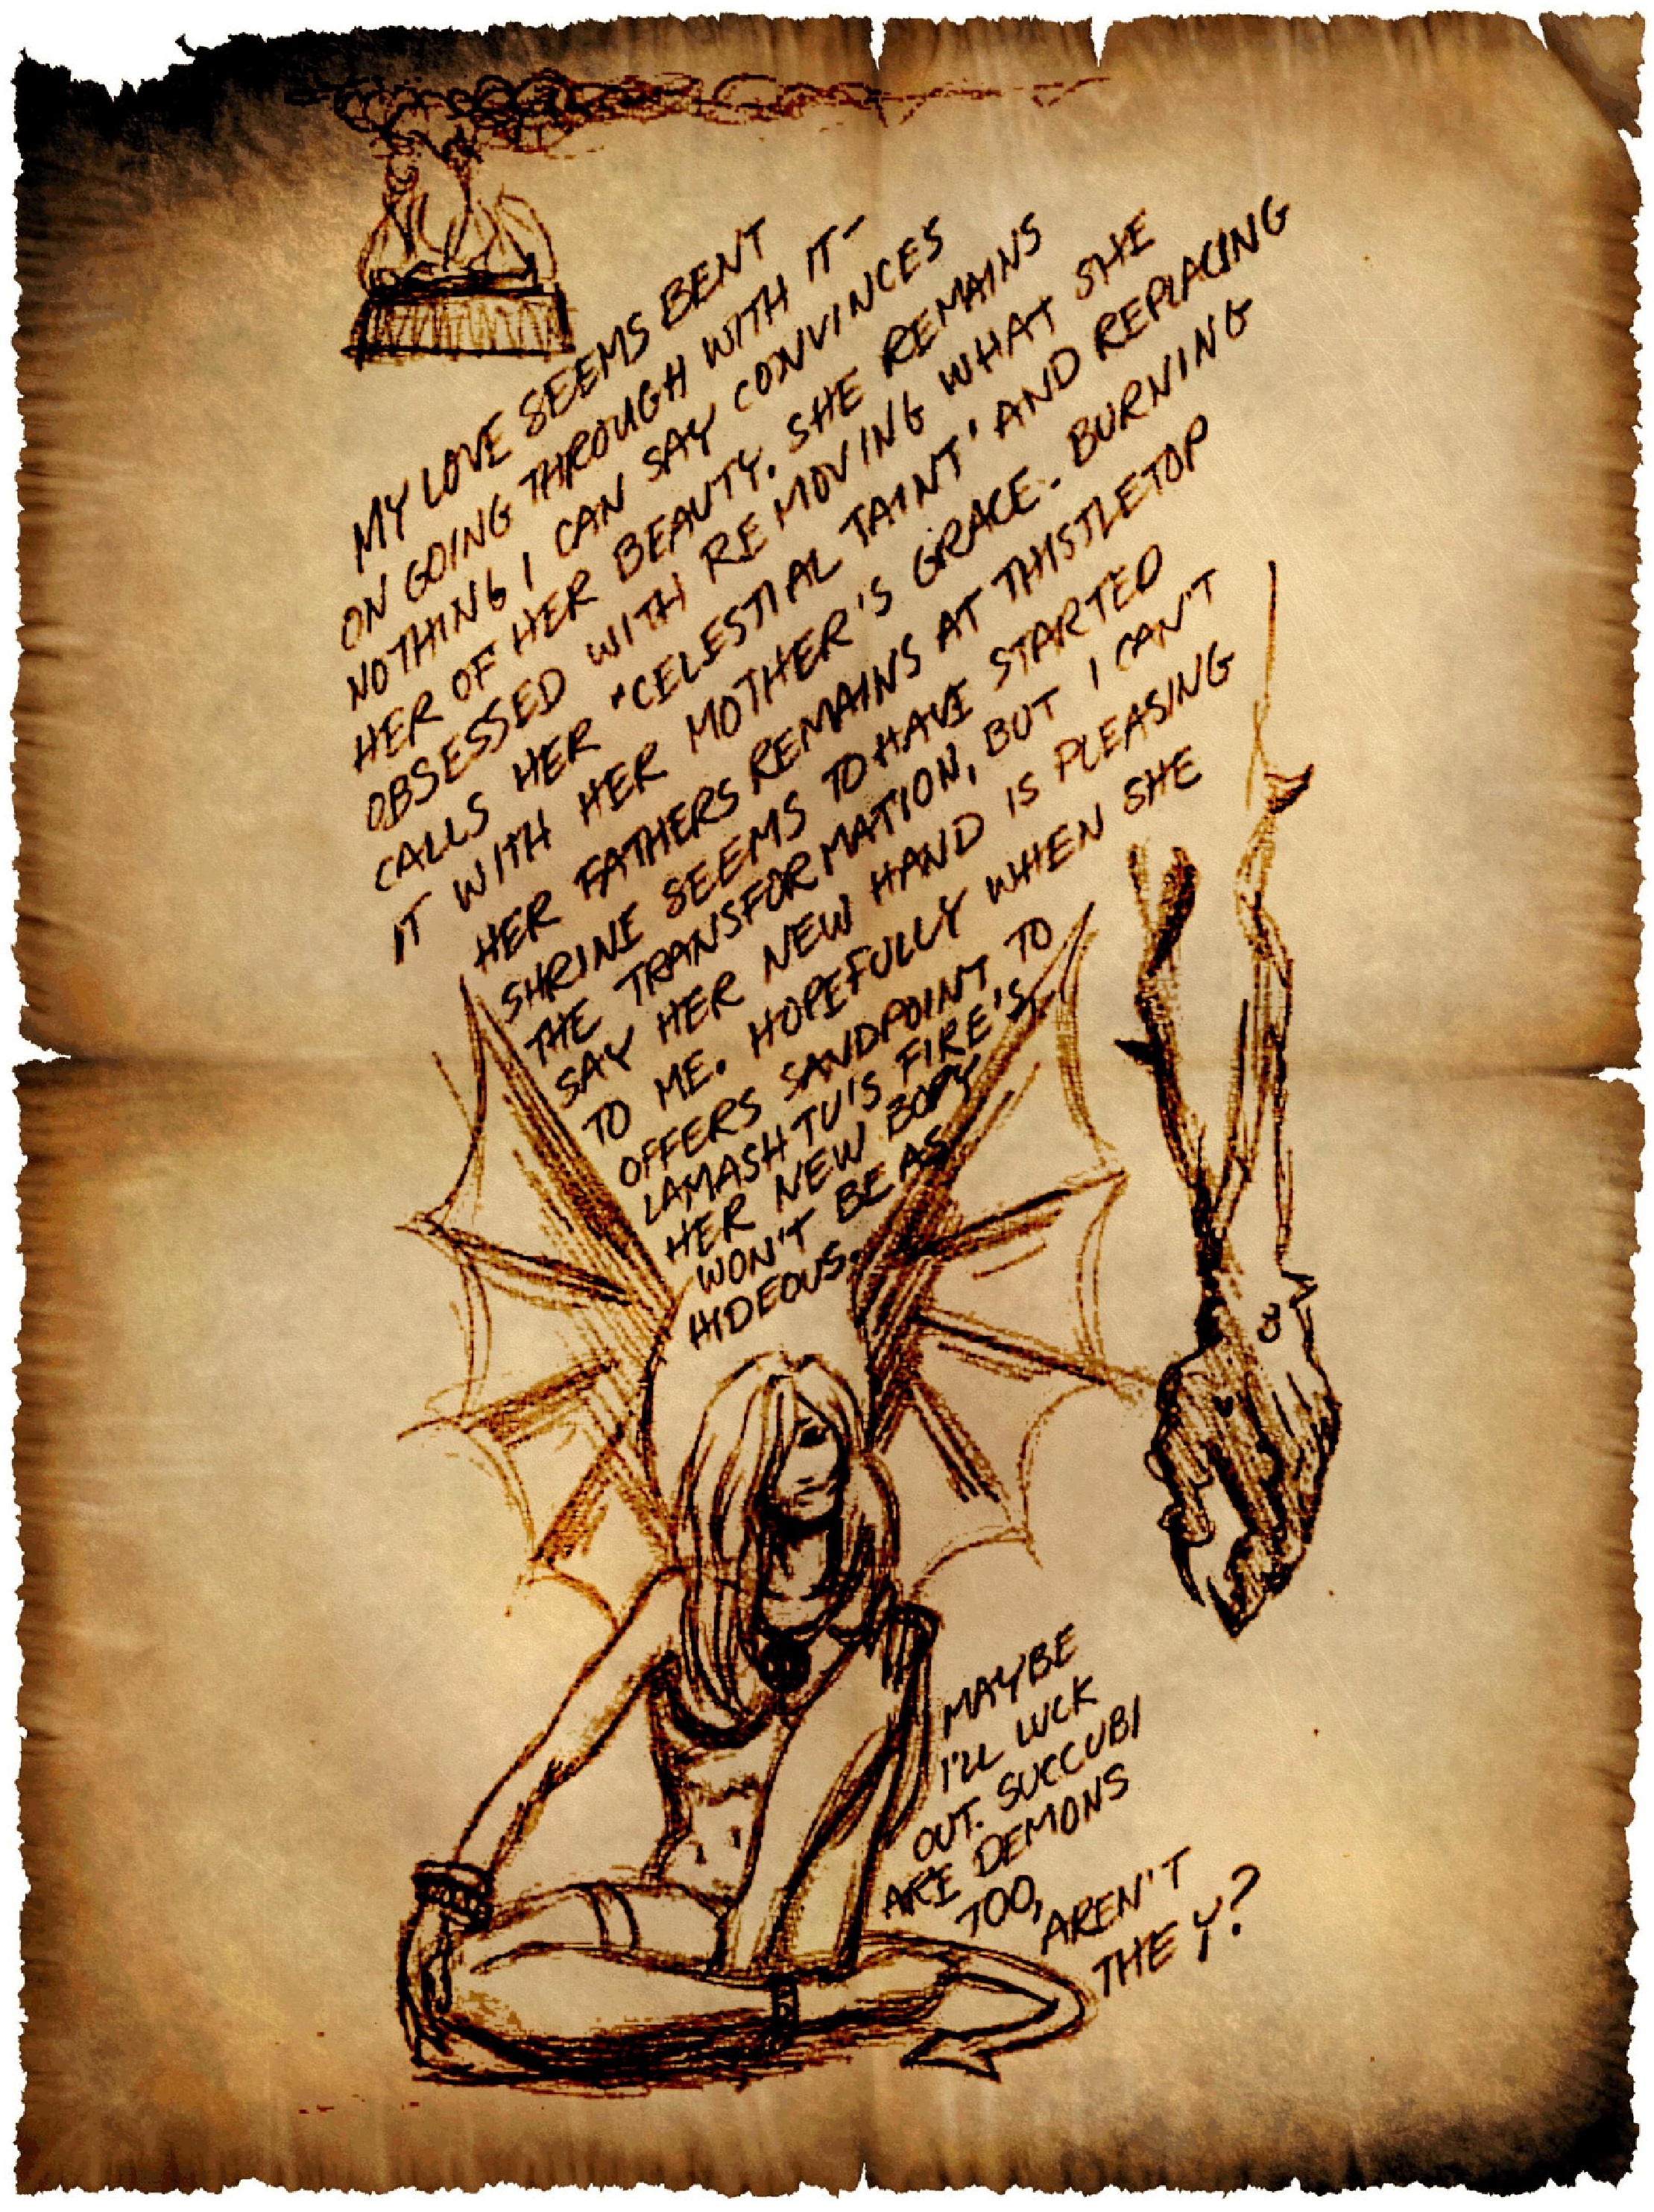 MY LOVE SEEMS BENT
ON GOING THROUGH WITH IT-
NOTHING I CAN SAY CONVINCES
HER OF HER BEAUTY. SHE REMAINS
OBSESSED WITH REMOVING WHAT SHE
CALLS HER "CELESTIAL TAINT' AND REPLACING
IT WITH HER MOTHER'S GRACE. BURNING
HER FATHERS REMAINS AT THISTLETOP
SHRINE SEEMS TO HAVE STARTED
THE TRANSFORMATION, BUT I CAN'T
SAY HER NEW HAND IS PLEASING
TO ME. HOPEFULLY WHEN SHE
OFFERS SANDPOINT TO
LAMASHTU'S FIRE'S,
HER NEW BODY
WON'T BE AS
HIDEOUS.
MAYBE
I'LL LUCK
OUT. SUCCUBI
ARE DEMONS
TOO,
AREN'T
THEY?